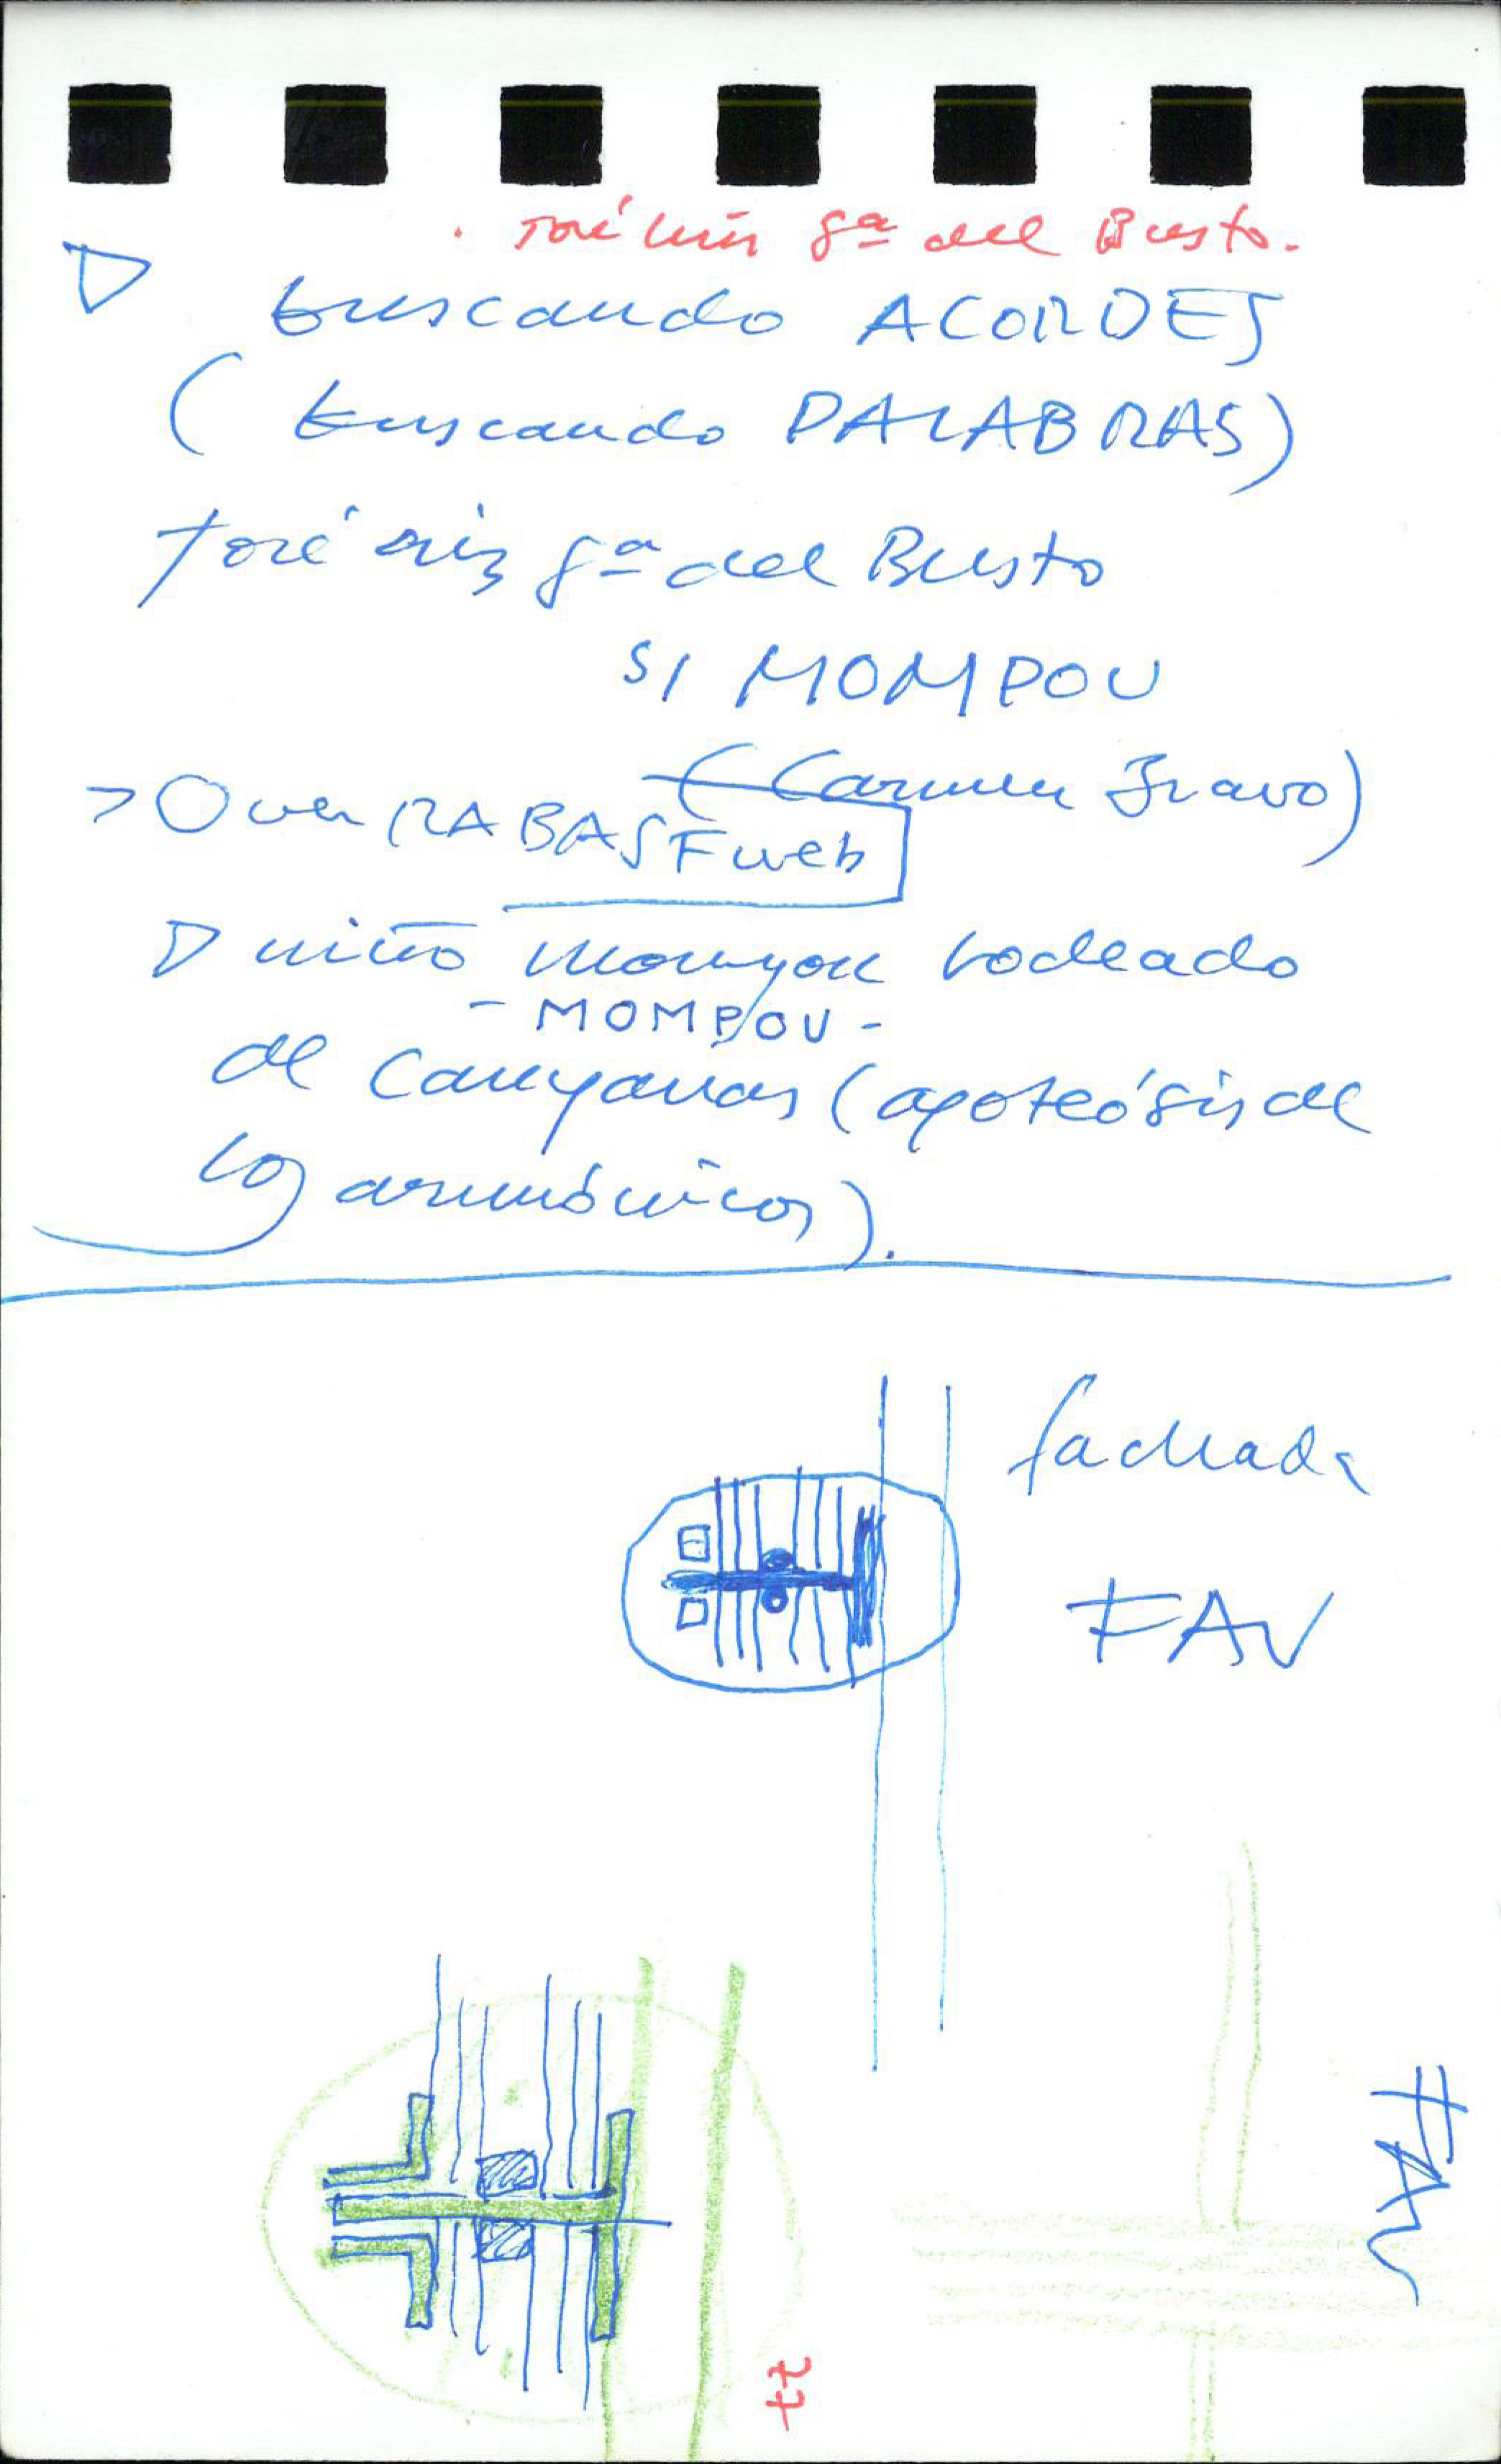 . José Luis Gª del Busto.
▷ buscando ACORDES
( buscando PALABRAS)
José Luis Gª del Busto
S/ MOMPOU
(Carmen Bravo)
> O ver RABASF web
▷ niño Mompou rodeado
- MOMPOU -
de Campanas (apoteósis de
los armónicos).
fachada
FAV
FAV